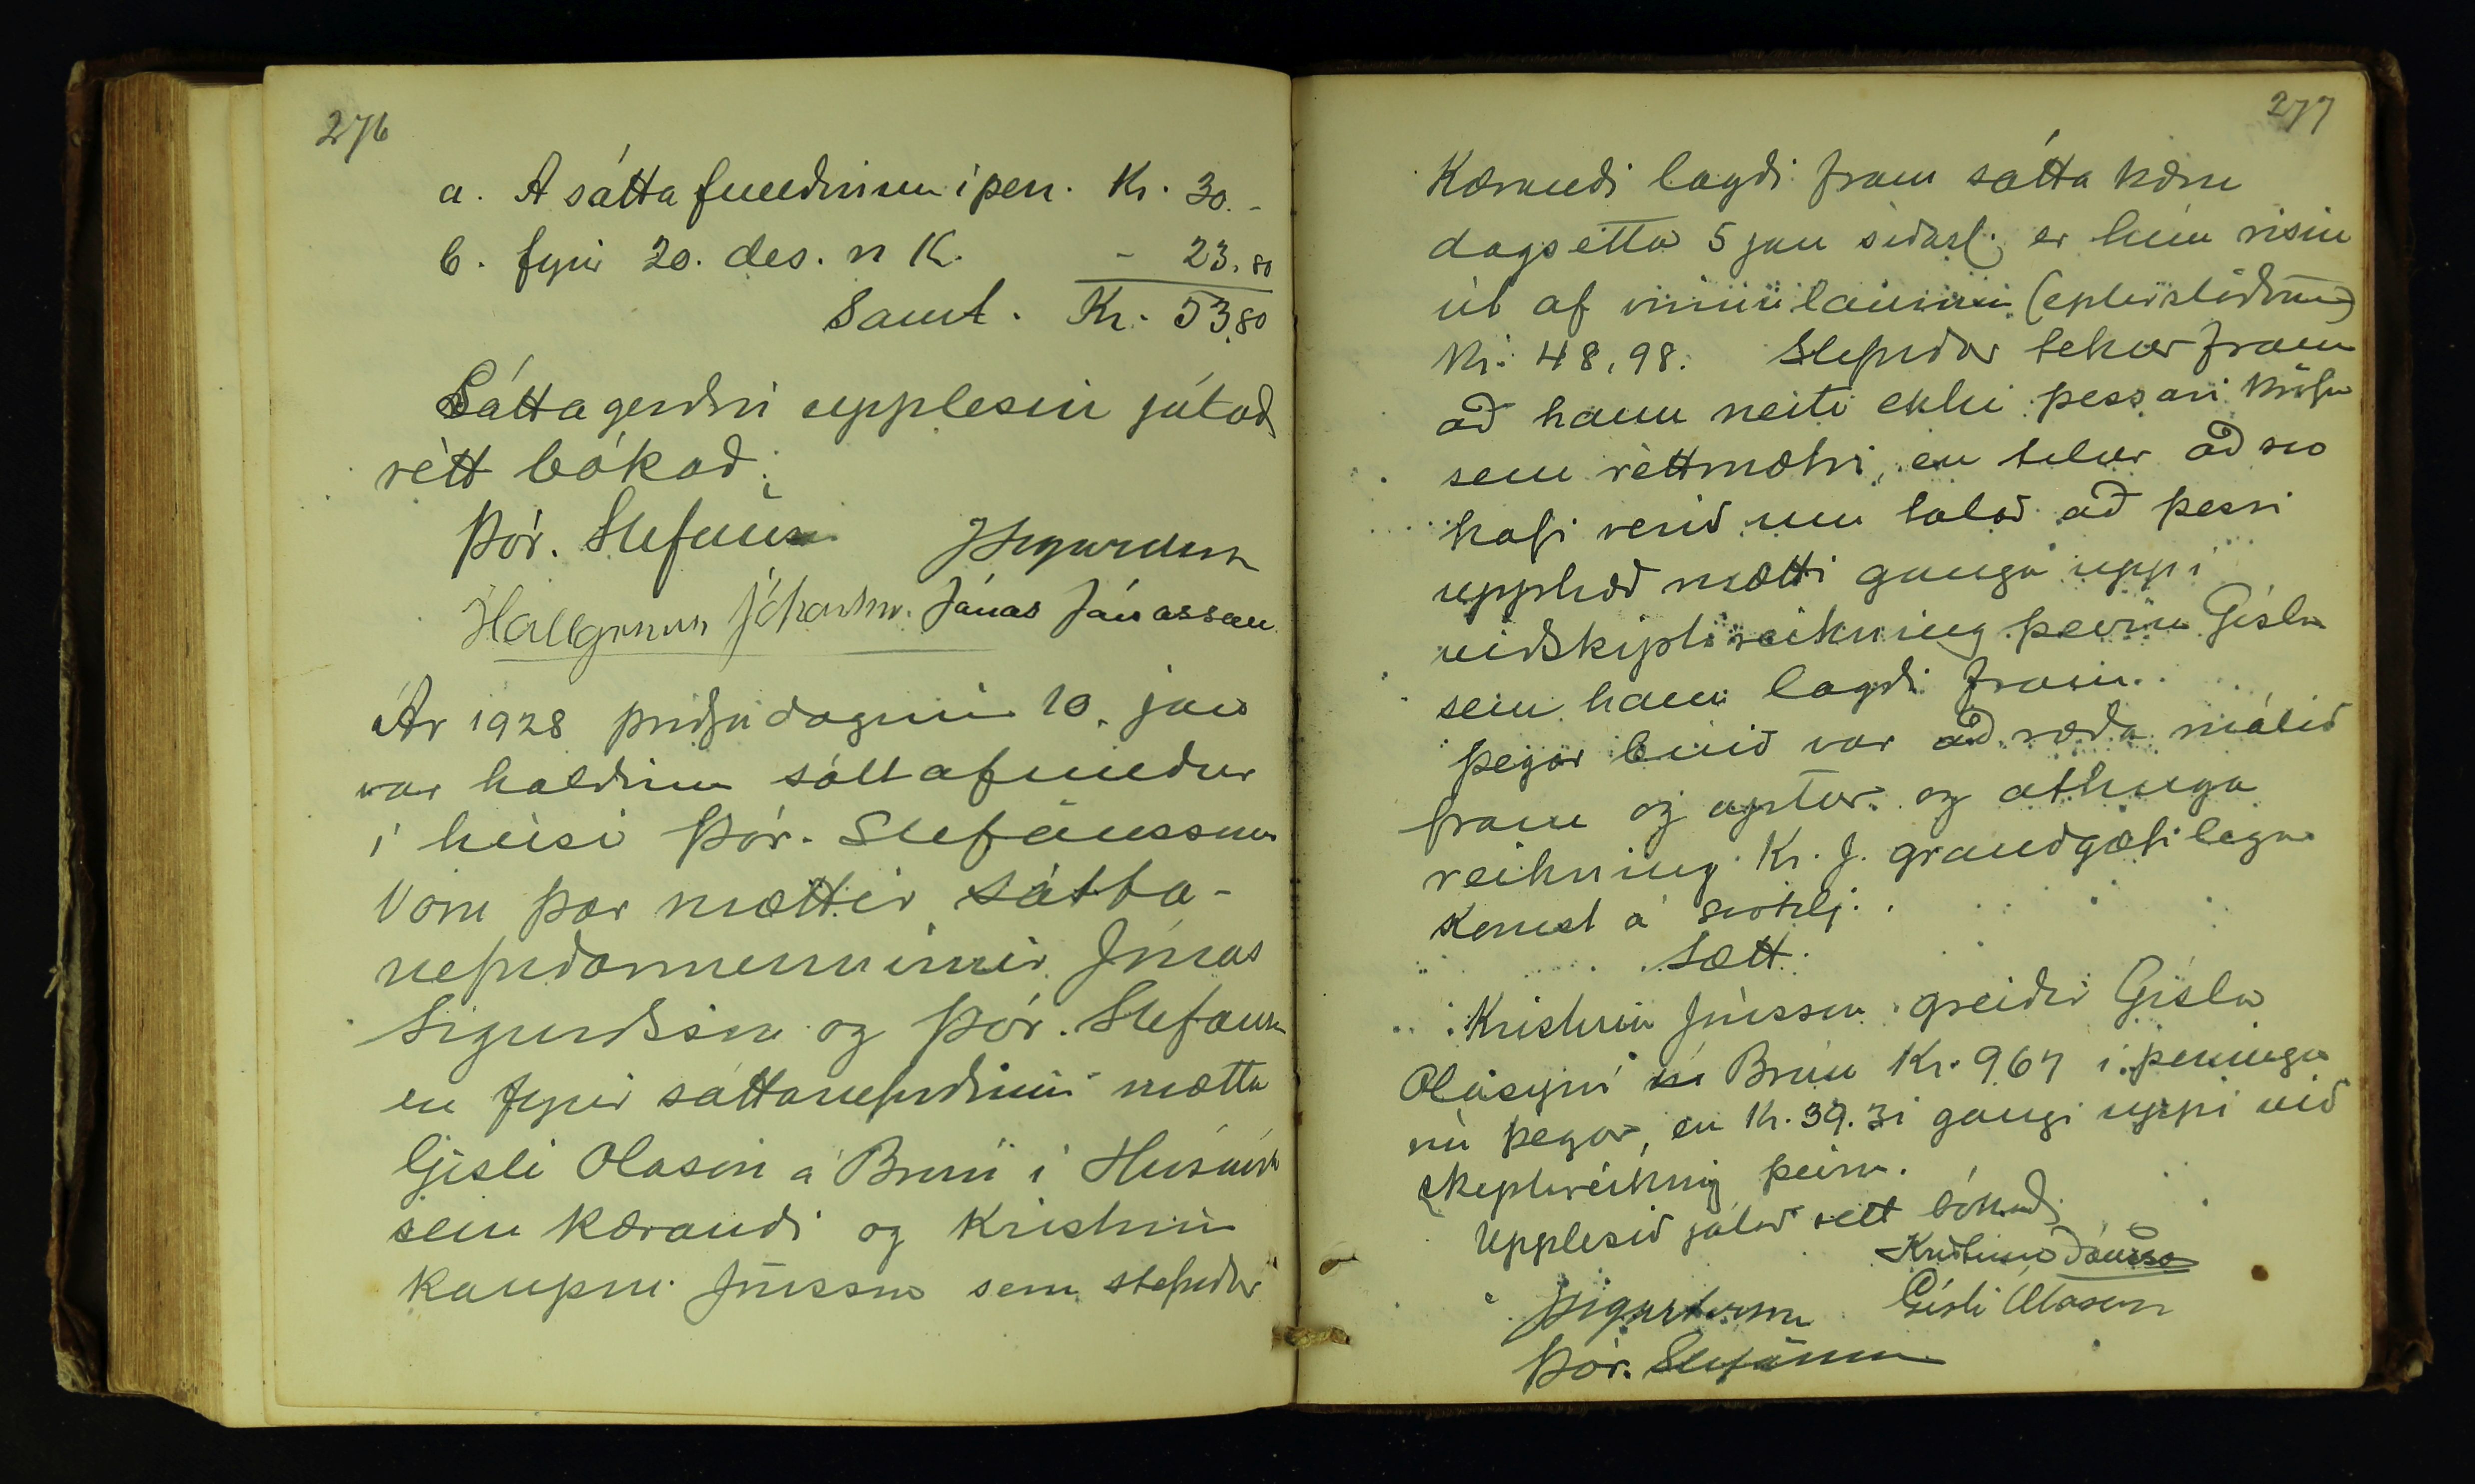 276
a. A sáttafundinum í pen. Kr. 30.-
b. fyrir 20. des. n k. - 23.80
Samt. Kr. 53.80
Sáttagerðin upplesin játað
rétt bókað;
Þór. Stefánss. JSigurdsson
Hallgrímur Jóhannss. Jónas Jónasson
Ár 1928 þriðjudaginn 10. jan
var haldinn sáttafundur
í húsi Þór. Stefánssonar
Voru þar mættir sátta-
nefndarmennirnir Jónas
Sigurðsson og Þór. Stefánss
en fyrir sáttanefndinni mættu
Gísli Olason á Brún í Húsavík
sem kærandi og Kristinn
kaupm. Jónsson sem stefndur
277
Kærandi lagði fram sátta kæru
dagsetta 5 jan síðastl. er hún risin
út af vinnulaunum (eptirstöðvum)
Kr. 48,98. Stefndur tekur fram
að hann neiti ekki þessari kröfu
sem réttmætri, en telur að svo
hafi verið um talað að þessi
upphæð mætti ganga upp í
viðskiptareikning þeirra Gísla
sem hann lagði fram.
Þegar búið var að ræða málið
fram og aptur og athuga
reikning Kr. J. grandgæfilega
komst á svohlj.
Sætt.
Kristinn Jónsson greiðir Gísla
Olasyni á Brún Kr. 9.67 í peninga
nú þegar, en Kr. 39.31 gangi uppí við
skiptareikning þeirra.
Upplesið játað rétt bókað;
Kristinn Jónsson
JSigurdsson Gísli Olason
Þór. Stefánsson